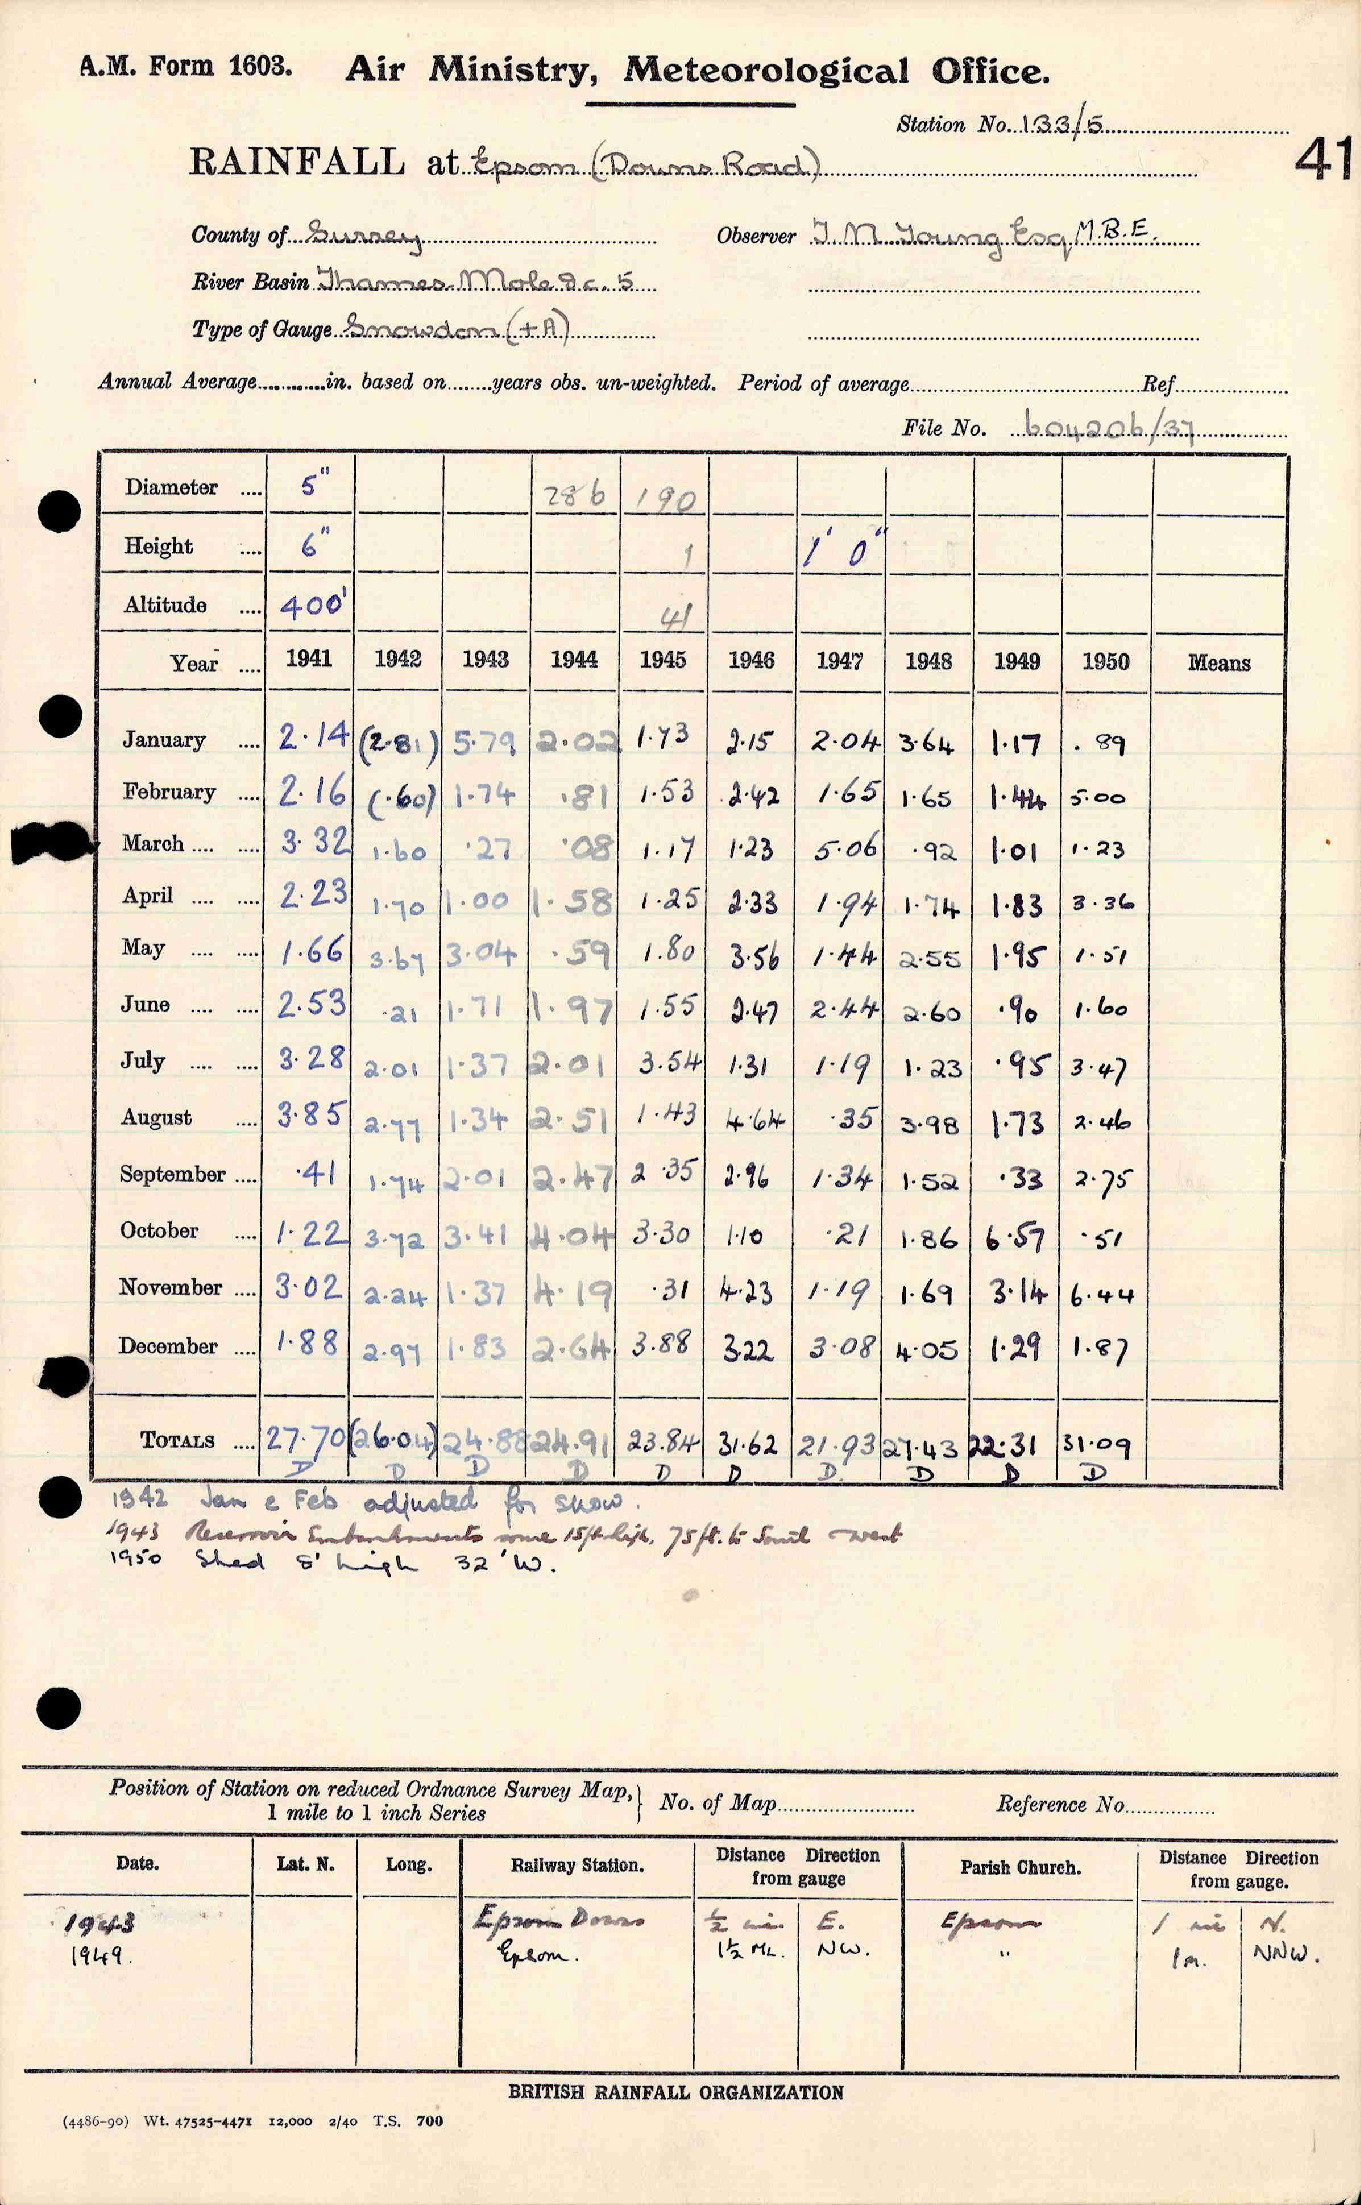 A.M. Form 1603. Air Ministry, Meteorological Office.
Station No. 133/5
41
RAINFALL at Epsom (Downs Road)
County of Surrey Observer T. N. Young Esq M.B.E.
River Basin Thames. Mole &c. 5
Type of Gauge Snowdon (+A)
Annual Average............in. based on........years obs. un-weighted. Period of average........Ref........
File No. 604206/37
Diameter .... 5" 286 190
Height .... 6" 1 1' 0"
Altitude .... 400' 41
Year .... 1941 1942 1943 1944 1945 1946 1947 1948 1949 1950 Means
January .... 2.14 (2.81) 5.79 2.02 1.73 2.15 2.04 3.64 1.17 .89
February .... 2.16 (.60) 1.74 .81 1.53 2.42 1.65 1.65 1.44 5.00
March .... .... 3.32 1.60 .27 .08 1.17 1.23 5.06 .92 1.01 1.23
April .... .... 2.23 1.70 1.00 1.58 1.25 2.33 1.94 1.74 1.83 3.36
May .... .... 1.66 3.67 3.04 .59 1.80 3.56 1.44 2.55 1.95 1.51
June .... .... 2.53 .21 1.71 1.97 1.55 2.47 2.44 2.60 .90 1.60
July .... .... 3.28 2.01 1.37 2.01 3.54 1.31 1.19 1.23 .95 3.47
August .... 3.85 2.77 1.34 2.51 1.43 4.64 .35 3.98 1.73 2.46
September .... .41 1.74 2.01 2.47 2.35 2.96 1.34 1.52 .33 2.75
October .... 1.22 3.72 3.41 4.04 3.30 1.10 .21 1.86 6.57 .51
November .... 3.02 2.24 1.37 4.19 .31 4.23 1.19 1.69 3.14 6.44
December .... 1.88 2.97 1.83 2.64 3.88 3.22 3.08 4.05 1.29 1.87
TOTALS .... 27.70 (26.04) 24.88 24.91 23.84 31.62 21.93 27.43 22.31 31.09
D D D D D D D. D D D
1942 Jan & Feb adjusted for snow.
1943 Reservoir Embankments some 15ft high, 75ft. to South & west
1950 Shed 8' high 32' W.
Position of Station on reduced Ordnance Survey Map,} No. of Map........ Reference No........
1 mile to 1 inch Series
Date. Lat. N. Long. Railway Station. Distance from gauge Direction Parish Church. Distance from gauge. Direction
1943 Epsom Downs ½ mi. E. Epsom 1 mi N.
1949. Epsom. 1½ ML. NW. " 1 m. NNW.
BRITISH RAINFALL ORGANIZATION
(4486-90) Wt. 47525-4471 12,000 2/40 T.S. 700